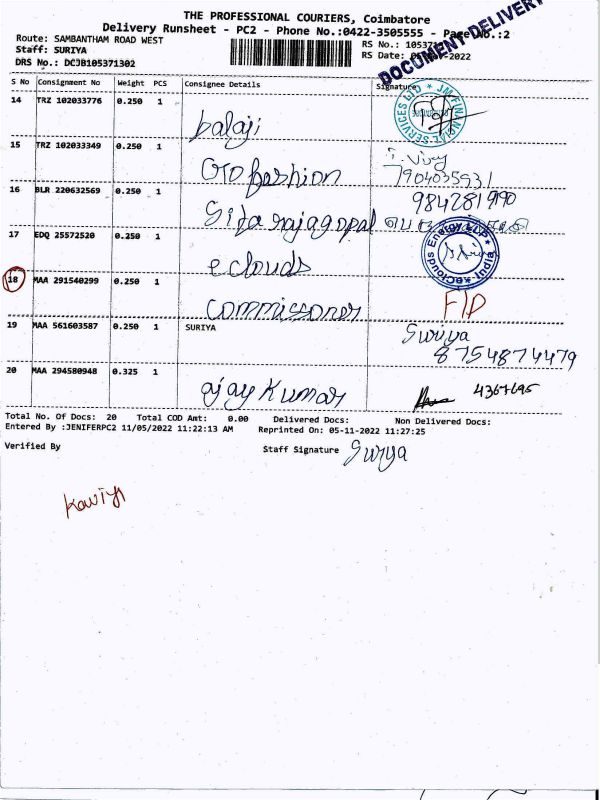 THE PROFESSIONAL COURIERS, Coimbatore
Delivery Runsheet - PC2 - Phone No.:0422-3505555 - Page No.:2
DOCUMENT DELIVERY
Route: SAMBANTHAM ROAD WEST
Staff: SURIYA
DRS No.: DCJB105371302
RS No.: 105371
RS Date: -2022
S No Consignment No Weight PCS Consignee Details Signature
14 TRZ 102033776 0.250 1 balaji
JM FINANCIAL SERVICES LTD
15 TRZ 102033349 0.250 1 Go fashion
7904035931
16 BLR 220632569 0.250 1 Sita rajagopal
17 EDQ 25572520 0.250 1 eclouds
eClouds Energy LLP India
18 MAA 291540299 0.250 1 commissoner F/D
19 MAA 561603587 0.250 1 SURIYA Suriya
8754874479
20 MAA 294580948 0.325 1 ajay Kumar
Total No. Of Docs: 20 Total COD Amt: 0.00 Delivered Docs: Non Delivered Docs:
Entered By :JENIFERPC2 11/05/2022 11:22:13 AM Reprinted On: 05-11-2022 11:27:25
Verified By Staff Signature Surya